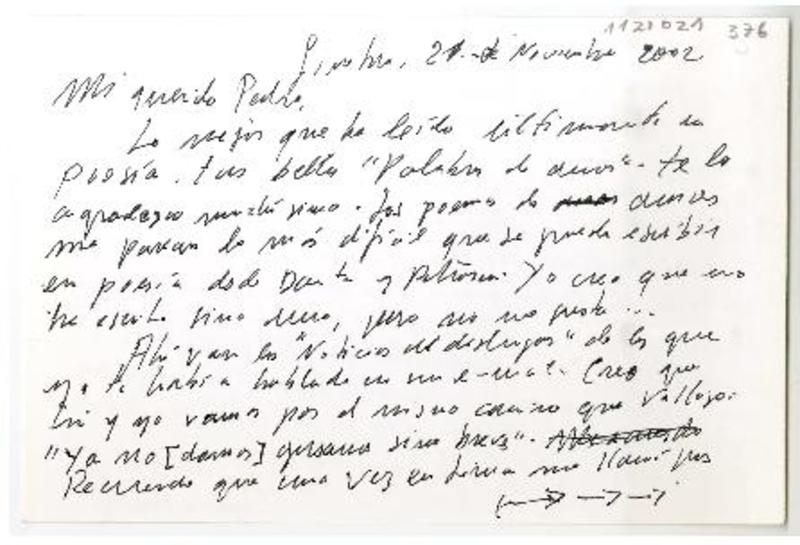 1121021 376
Ginebra, 21 de Noviembre 2002
Mi querido Pedro,
Lo mejor que he leído últimamente en
poesía, tus bella "Palabra de amor". te lo
agradezco muchísimo. Los poemas de amor
me parecen lo más difícil que se puede escribir
en poesía desde Dante y Petrarca. Yo creo que no
he escrito sino uno, pero no me gusta...
Ahí van las "Noticias del de los que
ya te había hablado en un e-mail. Creo que
tú y yo vamos por el mismo camino que Vallejo:
"Ya no [damos] sino
Recuerdo que una vez en me llamó por